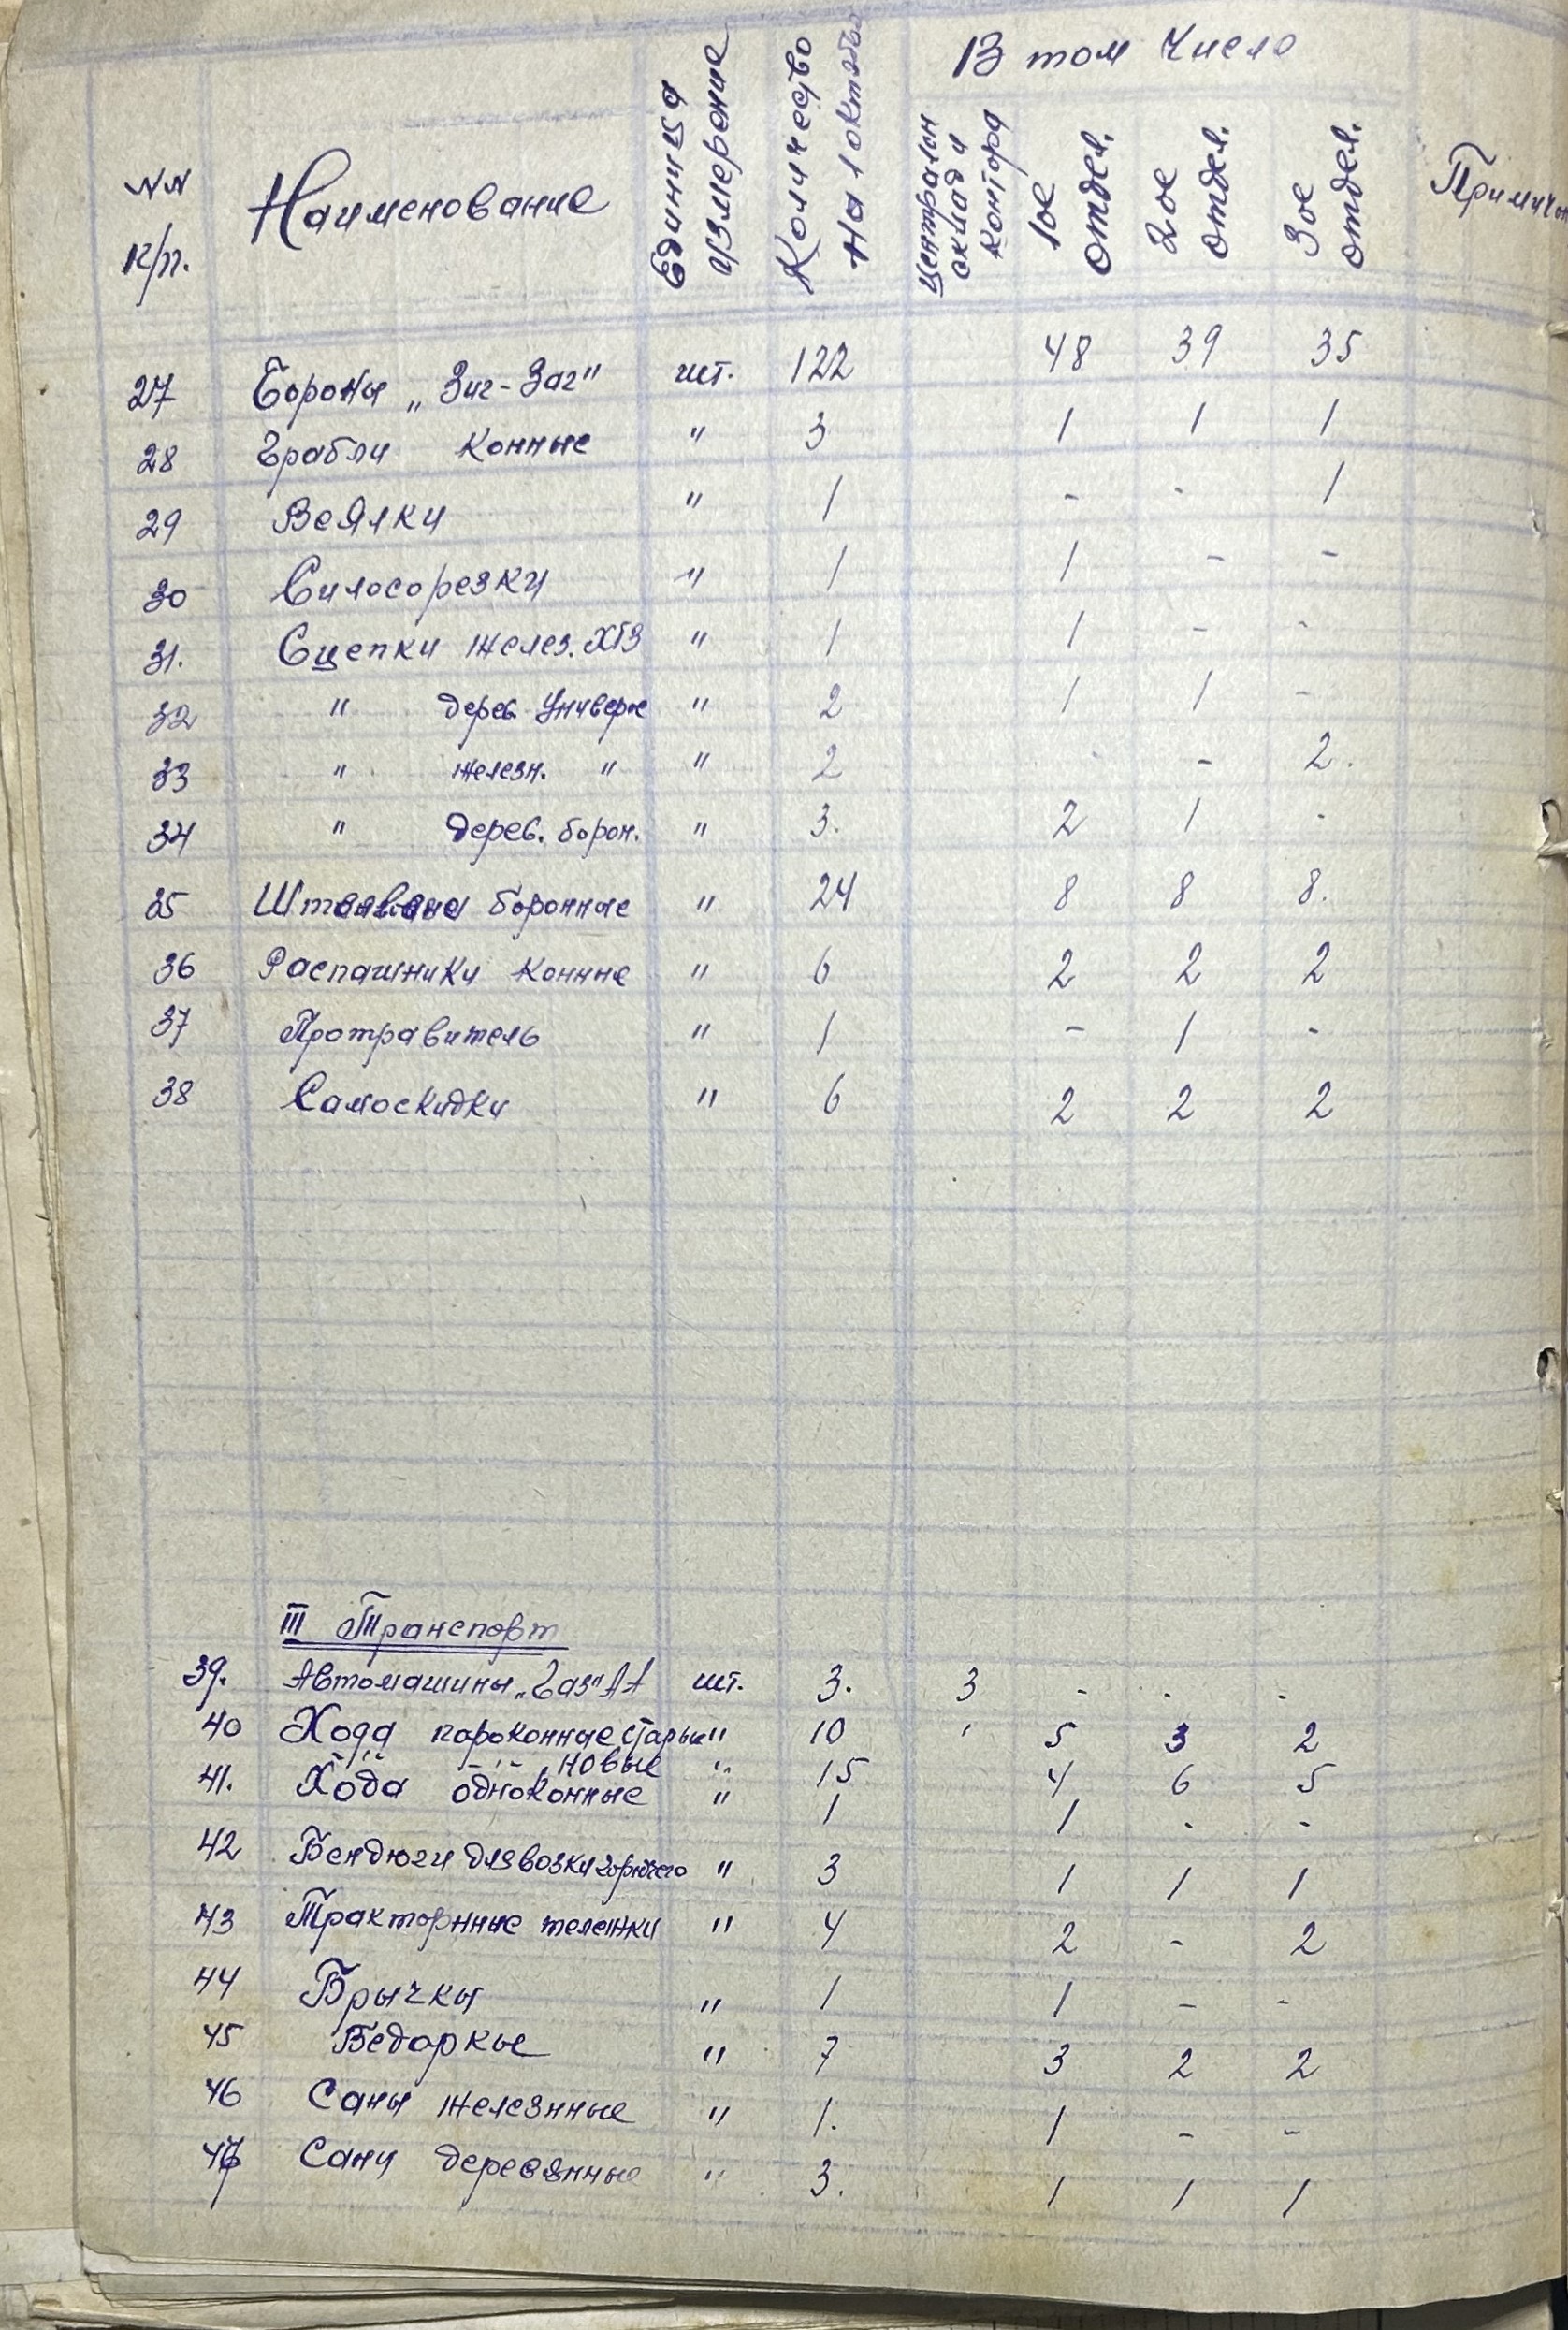 NN п/п. Наименование Единица измерения Количество на 1 октябр В том число Примечан
центральн склад и контора 1ое отдел. 2ое отдел. 3ое отдел.
27 Бороны „Зиг-Заг" шт. 122 48 39 35
28 Грабли конные " 3 1 1 1
29 Веялки " 1 - - 1
30 Силосорезки " 1 1 - -
31. Сцепки желез. ХТЗ " 1 1 - -
32 " дерев. Универс " 2 1 1 -
33 " железн. " " 2 - - 2.
34 " дерев. борон. " 3. 2 1 -
35 боронные " 24 8 8 8.
36 Распашники конные " 6 2 2 2
37 Протравитель " 1 - 1 -
38 Самоскидки " 6 2 2 2
III Транспорт
39. Автомашины „Газ" АА шт. 3. 3 - - -
40 Хода пароконные старые " 10 5 3 2
-"- -"- новые " 15 4 6 5
41. Хода одноконные " 1 1 - -
42 Бендюги для возки горючего " 3 1 1 1
43 Тракторнные тележки " 4 2 - 2
44 Брычкы " 1 1 - -
45 Бедаркые " 7 3 2 2
46 Саны железнные " 1. 1 - -
47 Сани деревянные " 3. 1 1 1